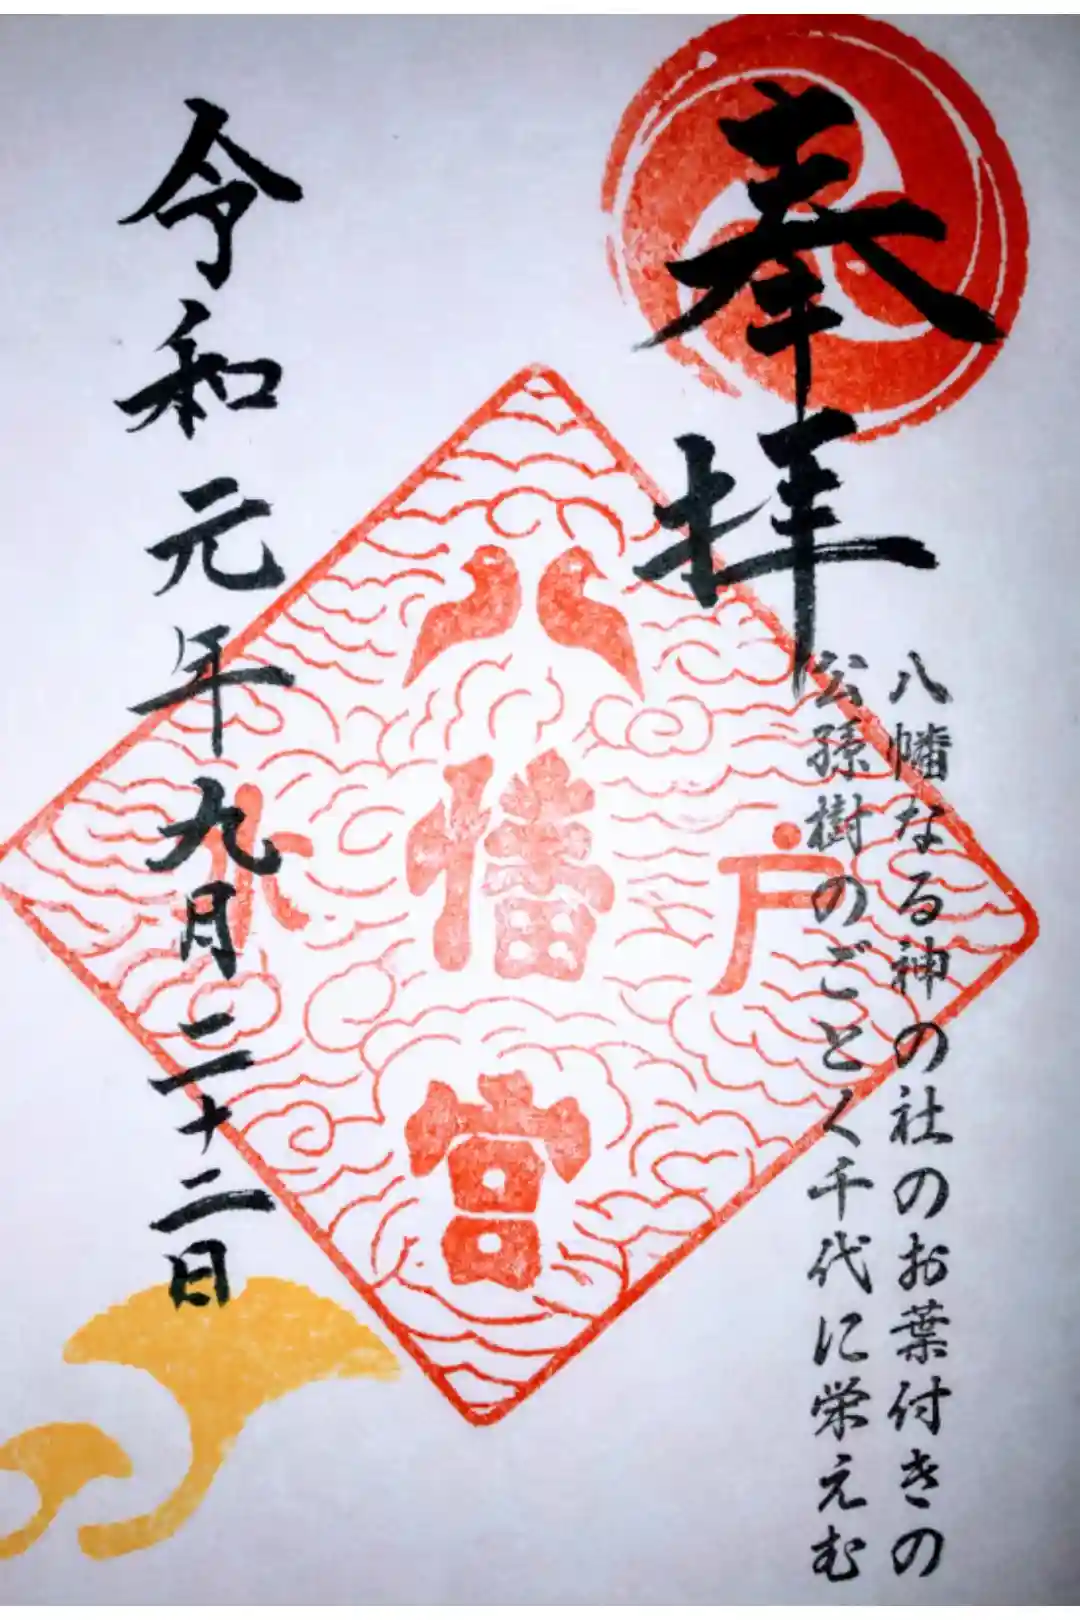 奉拝
八幡なる神の社のお葉付きの
公孫樹のごとく千代に栄えむ
水戸
八幡宮
令和元年九月二十二日